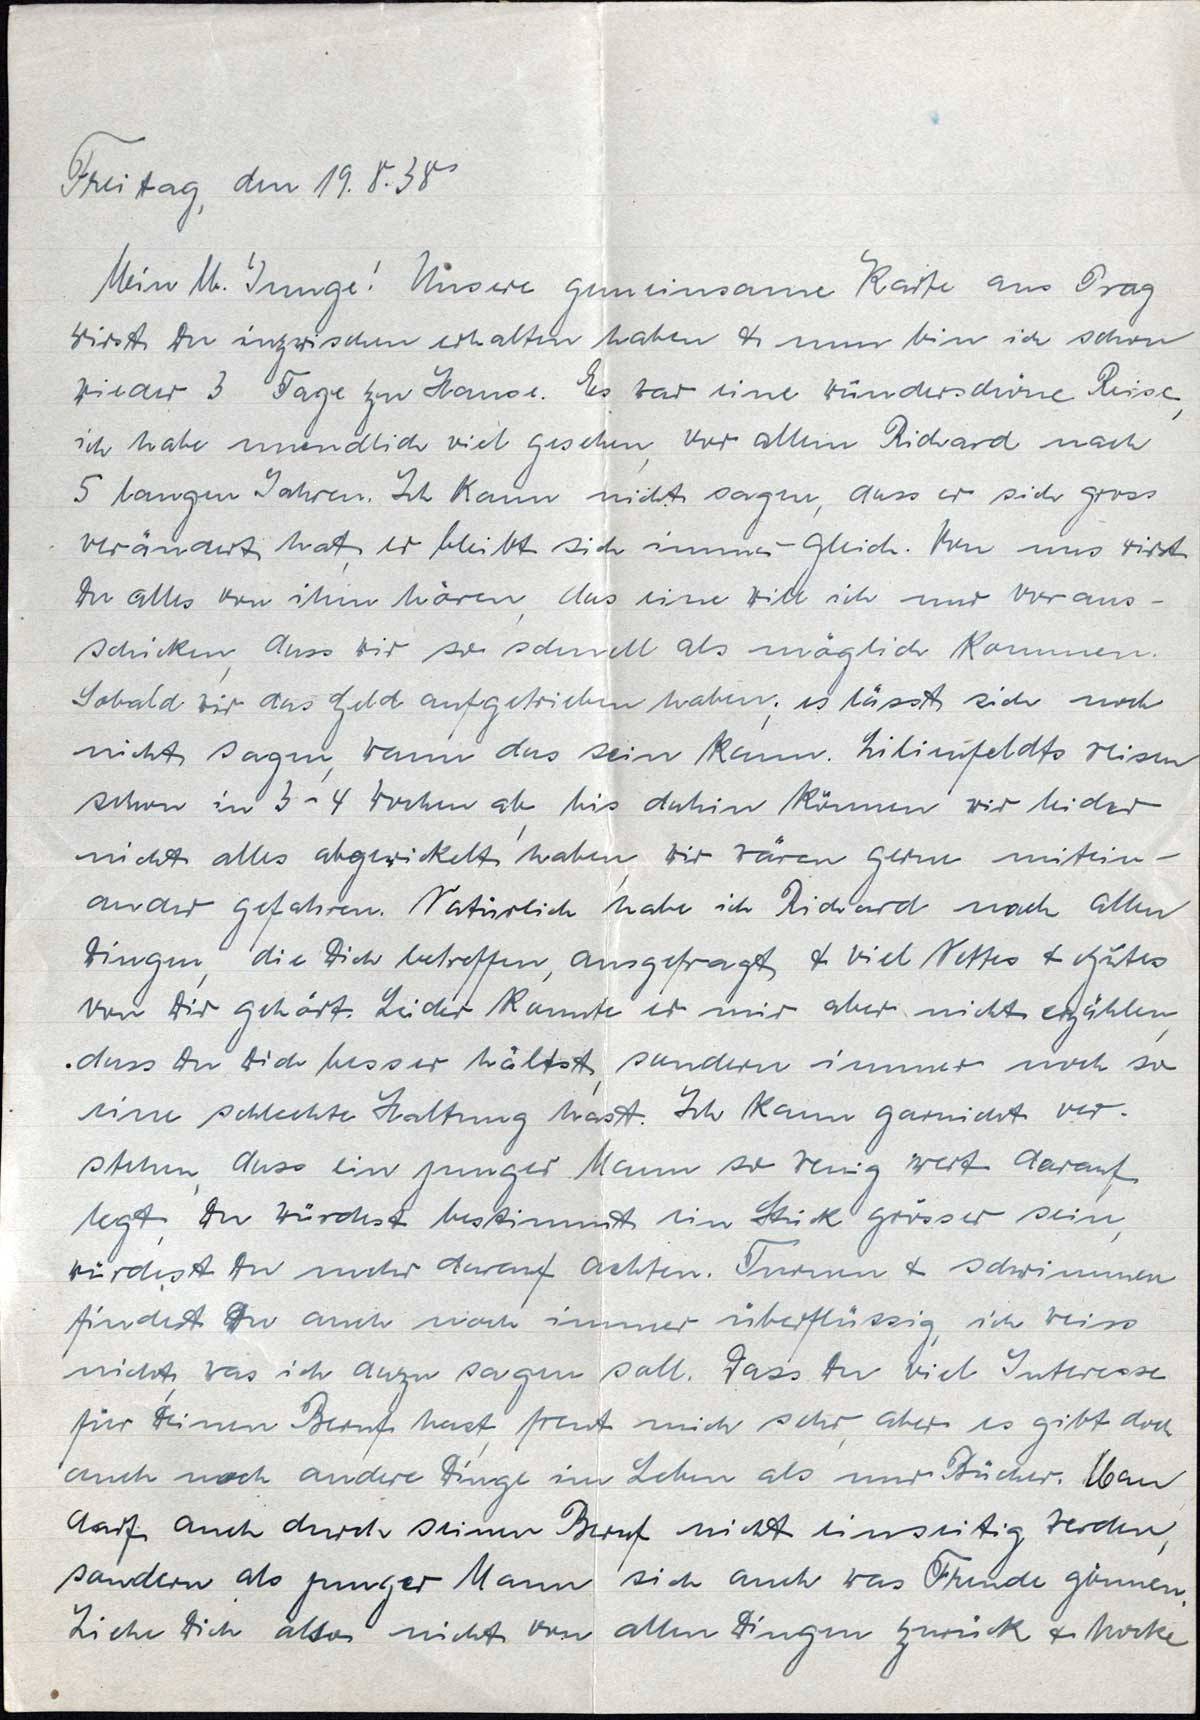 Freitag, den 19.8.38
Mein lb. Junge! Unsere gemeinsame Karte aus Prag
wirst Du inzwischen erhalten haben & nun bin ich schon
wieder 3 Tage zu Hause. Es war eine wunderschöne Reise,
ich habe unendlich viel gesehen, vor allem Richard nach
5 langen Jahren. Ich kann nicht sagen, dass er sich gross
verändert hat, er bleibt sich immer gleich. Von uns wirst
Du alles von ihm hören, das eine will ich nur voraus-
schicken, dass wir so schnell als möglich kommen.
Sobald wir das Geld aufgetrieben haben; es lässt sich noch
nicht sagen, wann das sein kann. Lilienfeldts reisen
schon in 3-4 Wochen ab, bis dahin können wir leider
nicht alles abgewickelt haben, wir wären gerne mitein-
ander gefahren. Natürlich habe ich Richard nach allen
Dingen, die Dich betreffen, ausgefragt & viel Nettes & Gutes
von Dir gehört. Leider konnte er mir aber nicht erzählen,
dass Du Dich besser hältst, sondern immer noch so
eine schlechte Haltung hast. Ich kann garnicht ver-
stehen, dass ein junger Mann so wenig wert darauf
legt, Du würdest bestimmt ein Stück grösser sein,
würdest Du mehr darauf achten. Turnen & schwimmen
findest Du auch noch immer überflüssig, ich weiss
nicht, was ich dazu sagen soll. Dass Du viel Interesse
für Deinen Beruf hast, freut mich sehr, aber es gibt doch
auch noch andere Dinge im Leben als nur Bücher. Man
darf auch durch seinen Beruf nicht einseitig werden,
sondern als junger Mann sich auch was Freude gönnen.
Ziehe Dich also nicht von allen Dingen zurück & hocke